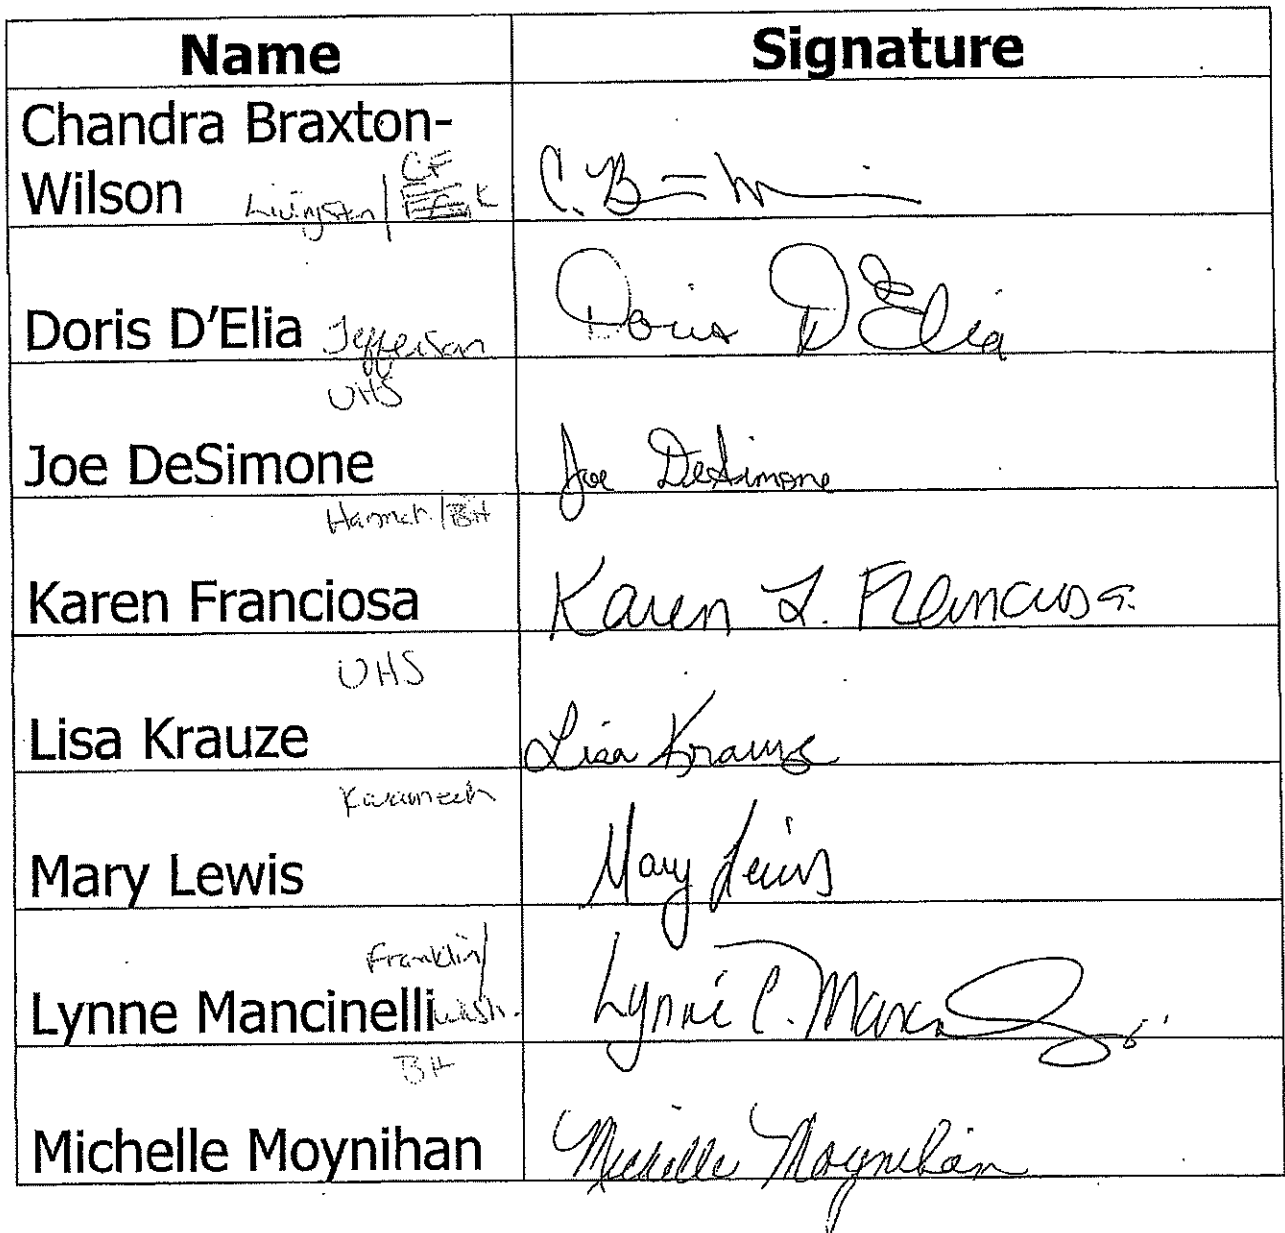 Name Signature
Chandra Braxton-
Wilson Livingston / CF K C. B=W
Doris D'Elia Jefferson Doris D'Elia
UHS
Joe DeSimone Joe DeSimone
Hannah / BH
Karen Franciosa Karen L. Franciosa
UHS
Lisa Krauze Lisa Krauze
Kawameeh
Mary Lewis Mary Lewis
Franklin/
Lynne Mancinelli Wash. Lynne C. Mancinelli
BH
Michelle Moynihan Michelle Moynihan